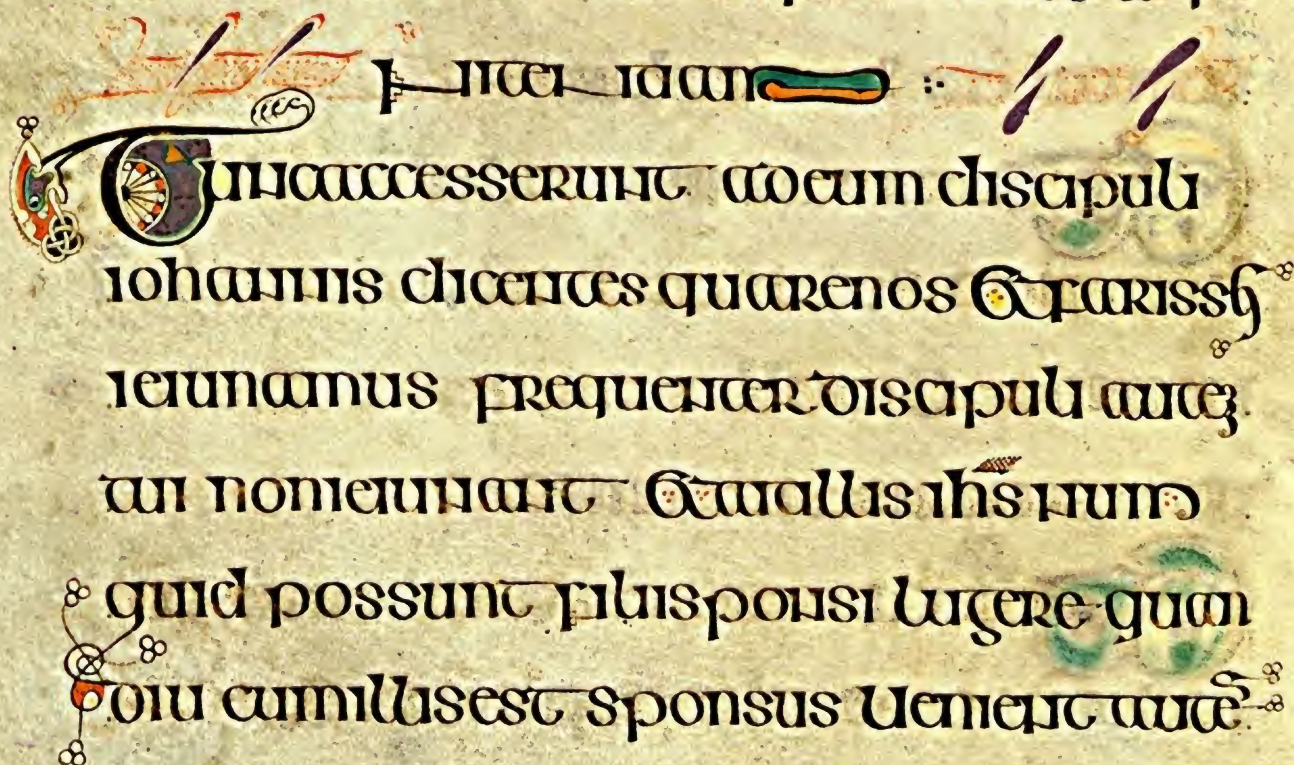 penitentiam
Tunc accesserunt ad eum discipuli
iohannis dicentes quare nos Et farissei
ieiunamus frequenter discipuli autem
tui non ieiunant Et ait illis ihs num
quid possunt filii sponsi lugere quam
diu cum illis est sponsus Uenient autē